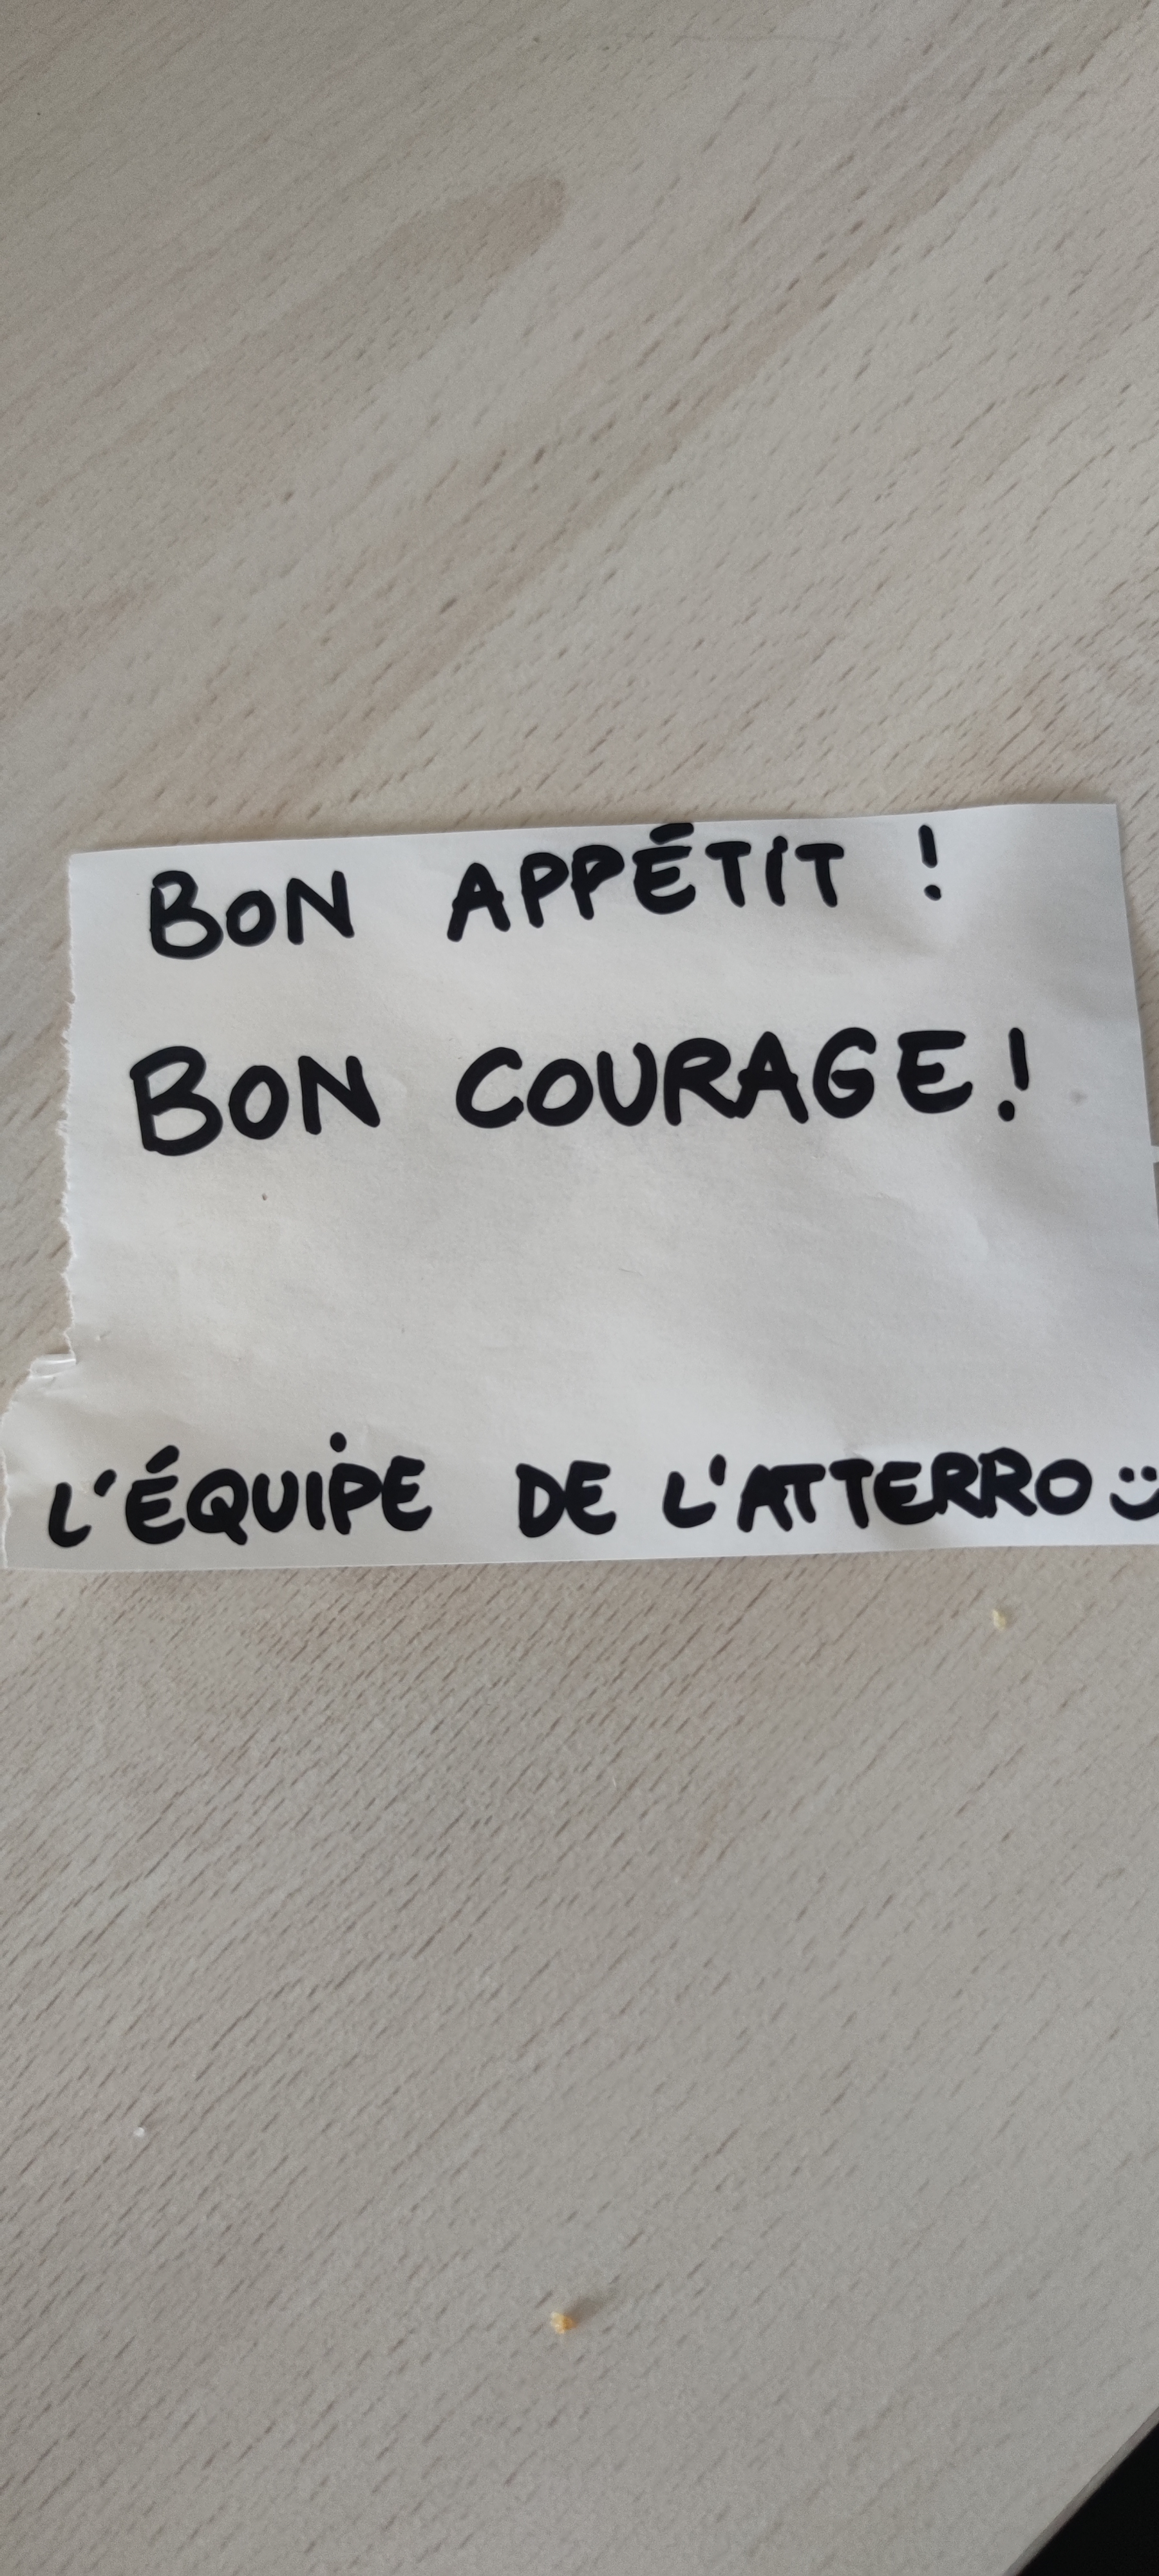 BON APPÉTIT !
BON COURAGE !
L'ÉQUIPE DE L'ATTERRO :)